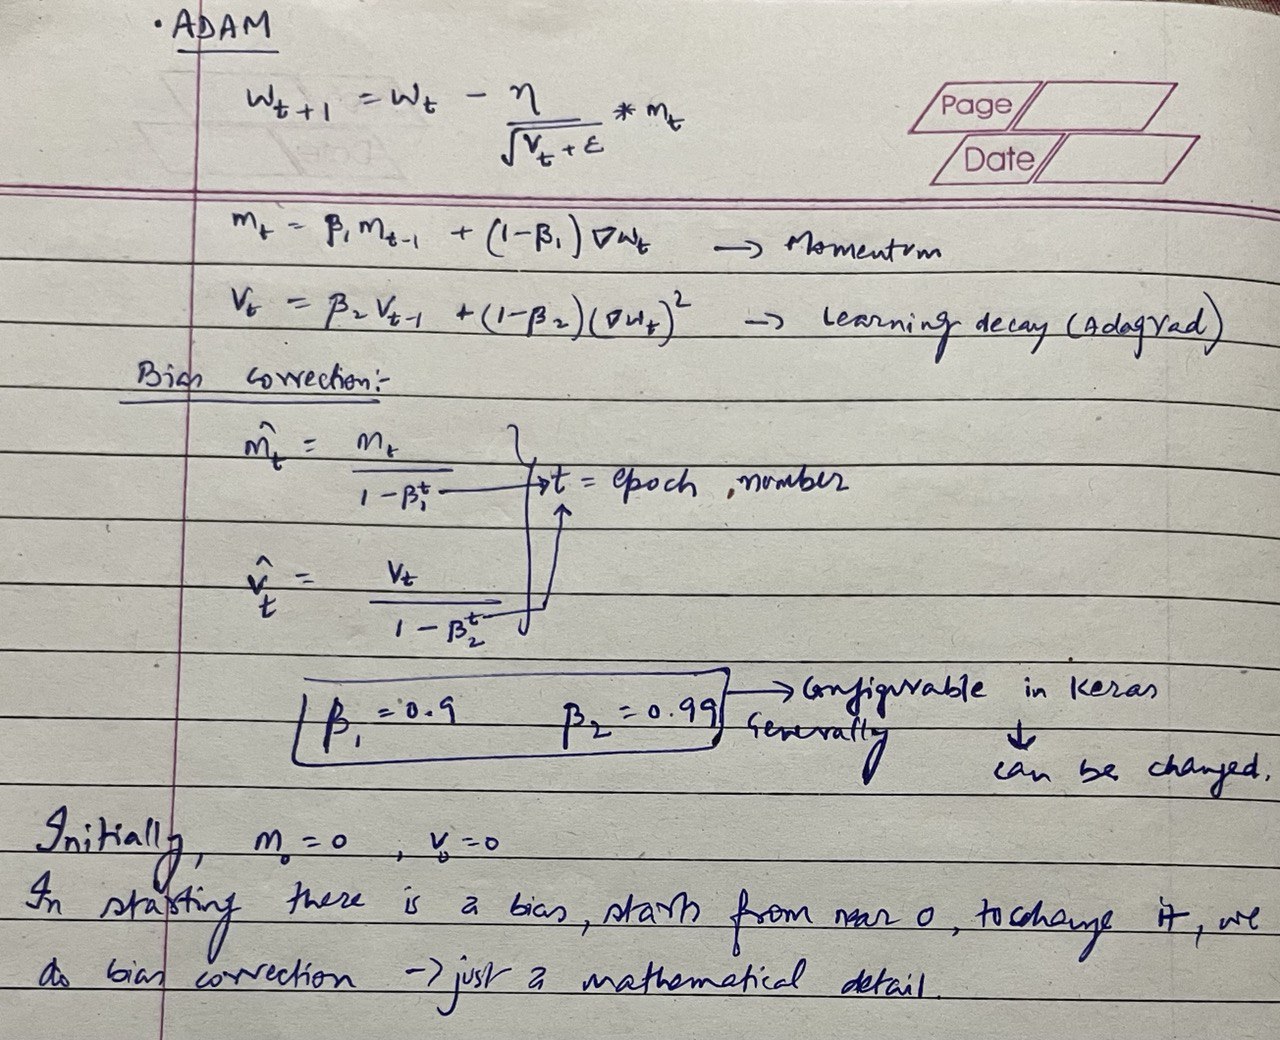 • ADAM
Wt+1 = Wt - η / √Vt + ε * mt
Page
Date
mt = β1 mt-1 + (1-β1) ∇Wt → Momentum
Vt = β2 Vt-1 + (1-β2)(∇Wt)² → Learning decay (Adagrad)
Bias correction:-
m̂t = mt / 1 - β1^t → t = epoch number
v̂t = Vt / 1 - β2^t
β1 = 0.9 β2 = 0.99 → Configurable in Keras
Generally ↓
can be changed.
Initially, m0 = 0 , v0 = 0
In starting there is a bias, starts from near 0, to change it, we
do bias correction → just a mathematical detail.